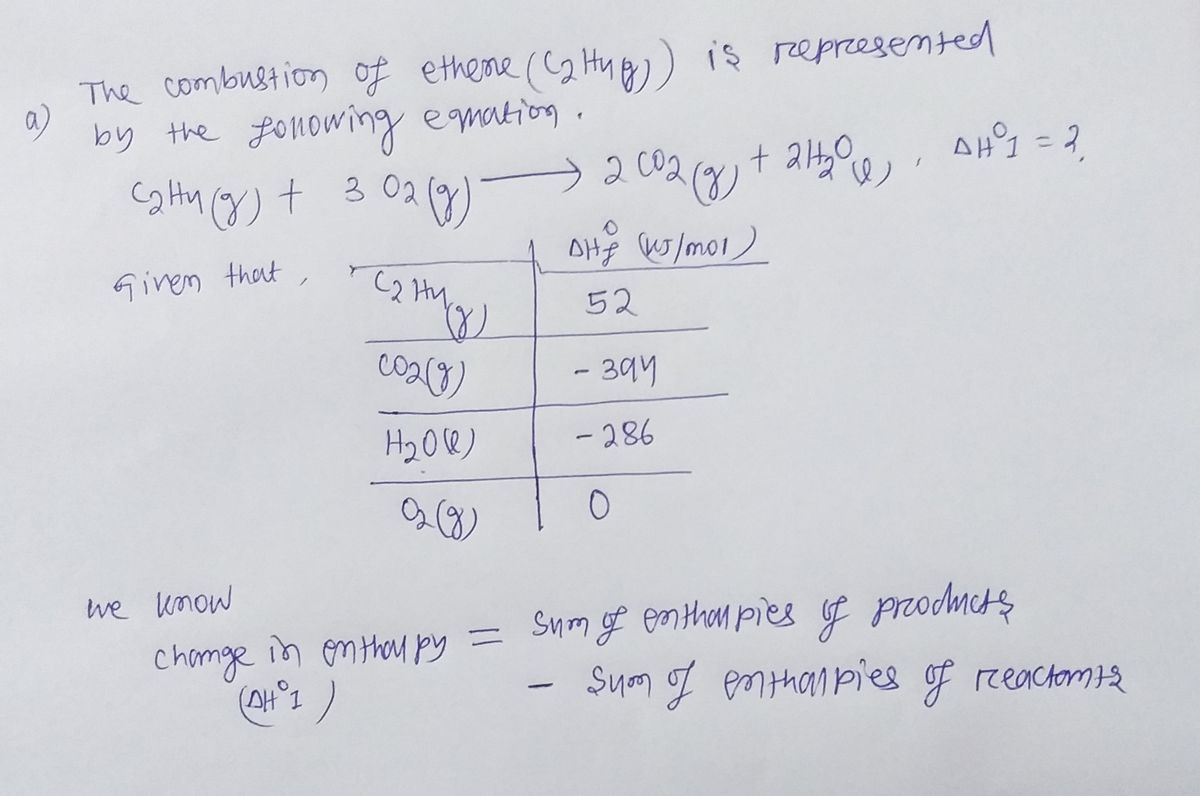 a) The combustion of ethene (C2H4(g)) is represented
by the following equation.
C2H4(g) + 3 O2(g) → 2 CO2(g) + 2H2O(l), ΔH°1 = ?
Given that, ΔH°f (kJ/mol)
C2H4(g) 52
CO2(g) - 394
H2O(l) - 286
O2(g) 0
we know
change in enthalpy = Sum of enthalpies of products
(ΔH°1) - Sum of enthalpies of reactants